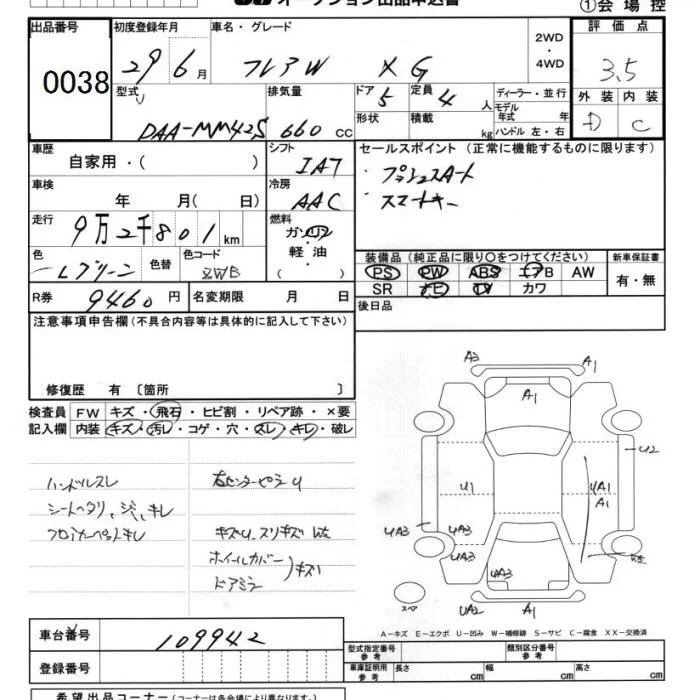 オークション出品申込書
①会場控
出品番号
0038
初度登録年月
29 6 月
車名・グレード
フレアW XG
2WD
・
4WD
評価点
3.5
型式
DAA-MM42S
排気量
660 CC
ドア
5
定員
4 人
形状
積載
kg
ディーラー・並行
モデル年式 年
ハンドル 左・右
外装 内装
D C
車歴
自家用・( )
シフト
IAT
セールスポイント (正常に機能するものに限ります)
・プッシュスタート
・スマートキー
車検
年 月( 日)
冷房
AAC
走行
9万2千801km
燃料
ガソリン
軽油
( )
色
Lグリーン
色替
色コード
ZWB
装備品 (純正品に限り○をつけてください)
PS PW ABS エアB AW
SR ナビ TV カワ
新車保証書
有・無
R券
9460円
名変期限 月 日
後日品
注意事項申告欄(不具合内容等は具体的に記入して下さい)
修復歴 有 〔箇所 〕
検査員
記入欄
FW キズ・飛石・ヒビ割・リペア跡・×要
内装 キズ・汚レ・コゲ・穴・スレ・キレ・破レ
ハンドルスレ
シートヘタリ、シミ、キレ
フロアカーペットキレ
右センターピラーU
キズU、スリキズ
ホイールカバー
ドアミラー
キズ
A3
A1
A1
U2
U1
UA1
A1
UA3
UA3
UA3
UA3
UA2
A1
スペア
A―キズ E―エクボ U―凹み W―補修跡 S―サビ C―腐食 XX―交換済
車台番号
109942
登録番号
型式指定番号
参考
類別区分番号
参考
車庫証明用
参考
長さ cm
幅 cm
高さ cm
希望出品コーナー(コーナーは各会場により異なります。)